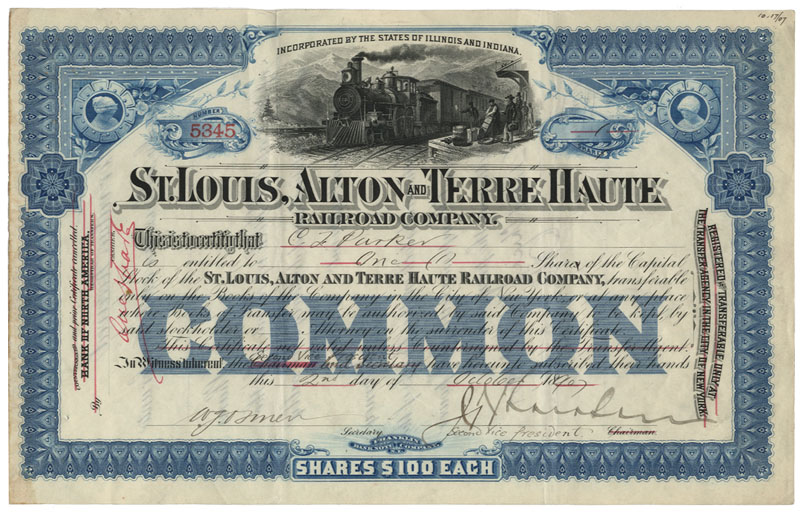 10-17/07
INCORPORATED BY THE STATES OF ILLINOIS AND INDIANA.
NUMBER
5345
SHARES
ST. LOUIS, ALTON AND TERRE HAUTE
RAILROAD COMPANY.
This is to certify that C F Parker
is entitled to One Shares of the Capital
Stock of the ST. LOUIS, ALTON AND TERRE HAUTE RAILROAD COMPANY, transferable
on the Books of the Company in the City of New York, or at any place
where Books of transfer may be authorized by said Company to be kept, by
said stockholder or Attorney on the surrender of this Certificate.
This Certificate not valid unless countersigned by the Transfer Agent.
In Witness whereof, the Chairman and Secretary have hereunto subscribed their hands
this 2nd day of October
COMMON
Secretary
Second Vice President
Chairman
FRANKLIN
BANK NOTE COMPANY
SHARES $100 EACH
One Share
BANK OF NORTH AMERICA.
REGISTERED AND TRANSFERABLE ONLY AT
THE TRANSFER AGENCY IN THE CITY OF NEW YORK.